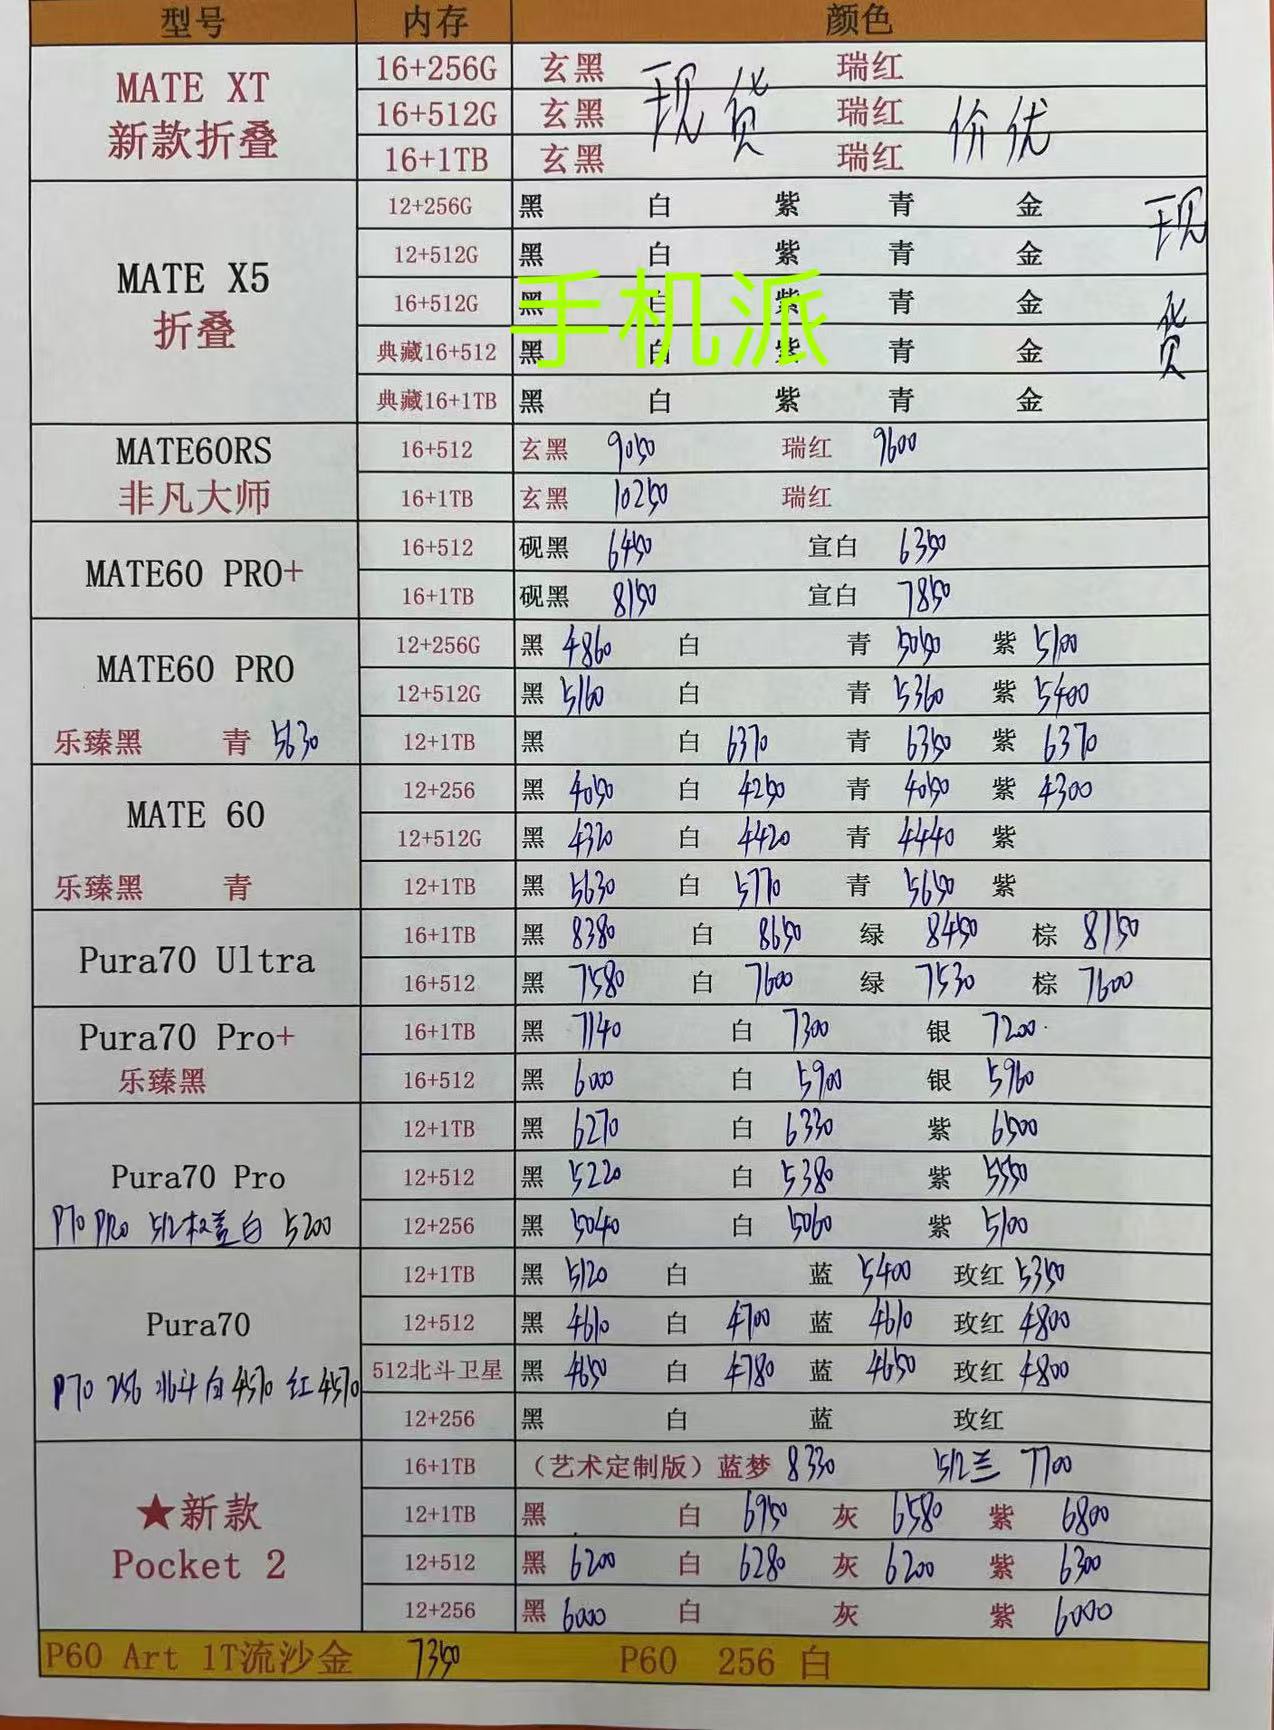 型号 内存 颜色
MATE XT 新款折叠
16+256G 玄黑 瑞红
16+512G 玄黑 瑞红
16+1TB 玄黑 瑞红
现货 价优
MATE X5 折叠
12+256G 黑 白 紫 青 金
12+512G 黑 白 紫 青 金
16+512G 黑 白 紫 青 金
典藏16+512 黑 白 紫 青 金
典藏16+1TB 黑 白 紫 青 金
现货
手机派
MATE60RS 非凡大师
16+512 玄黑 9050 瑞红 9600
16+1TB 玄黑 10250 瑞红
MATE60 PRO+
16+512 砚黑 6450 宣白 6350
16+1TB 砚黑 8150 宣白 7850
MATE60 PRO
12+256G 黑 4860 白 青 5050 紫 5100
12+512G 黑 5160 白 青 5360 紫 5400
乐臻黑 青 5630
12+1TB 黑 白 6370 青 6350 紫 6370
MATE 60
12+256 黑 4050 白 4250 青 4050 紫 4300
12+512G 黑 4320 白 4420 青 4440 紫
乐臻黑 青
12+1TB 黑 5630 白 5770 青 5650 紫
Pura70 Ultra
16+1TB 黑 8380 白 8650 绿 8450 棕 8150
16+512 黑 7580 白 7600 绿 7530 棕 7600
Pura70 Pro+
乐臻黑
16+1TB 黑 7140 白 7300 银 7200
16+512 黑 6000 白 5900 银 5960
Pura70 Pro
12+1TB 黑 6270 白 6330 紫 6500
12+512 黑 5220 白 5380 紫 5550
P70 PRO 512 权益 白 5200
12+256 黑 5040 白 5060 紫 5100
Pura70
12+1TB 黑 5120 白 蓝 5400 玫红 5350
12+512 黑 4610 白 4700 蓝 4610 玫红 4800
P70 256 北斗 白 4570 红 4570
512北斗卫星 黑 4650 白 4780 蓝 4650 玫红 4800
12+256 黑 白 蓝 玫红
★新款 Pocket 2
16+1TB (艺术定制版) 蓝梦 8330 512兰 7700
12+1TB 黑 白 6950 灰 6580 紫 6800
12+512 黑 6200 白 6280 灰 6200 紫 6300
12+256 黑 6000 白 灰 紫 6000
P60 Art 1T流沙金 7350 P60 256 白